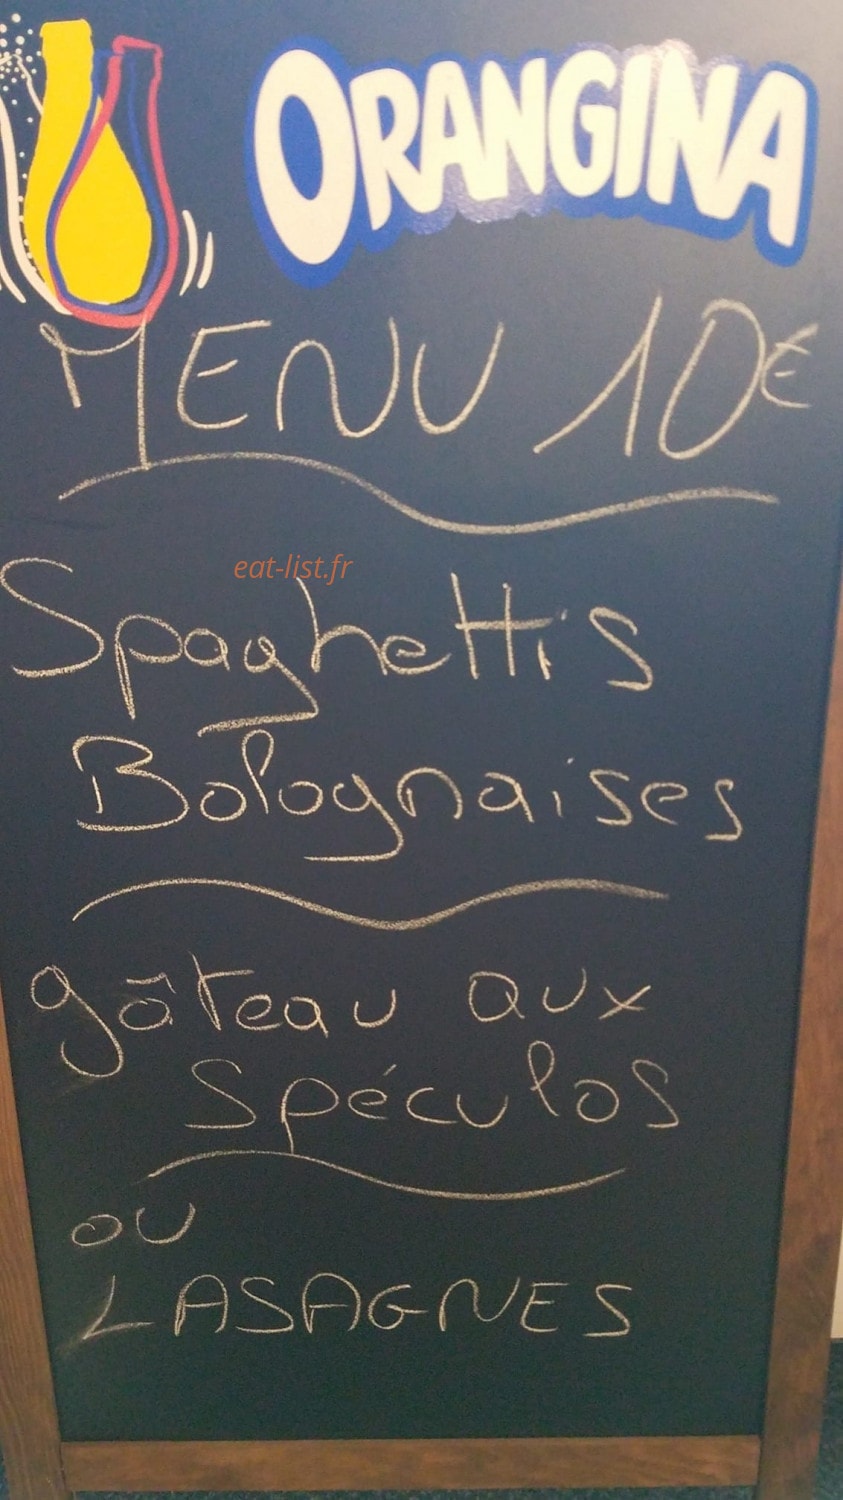 ORANGINA
MENU 10€
eat-list.fr
Spaghettis
Bolognaises
gâteau aux
Spéculos
ou
LASAGNES